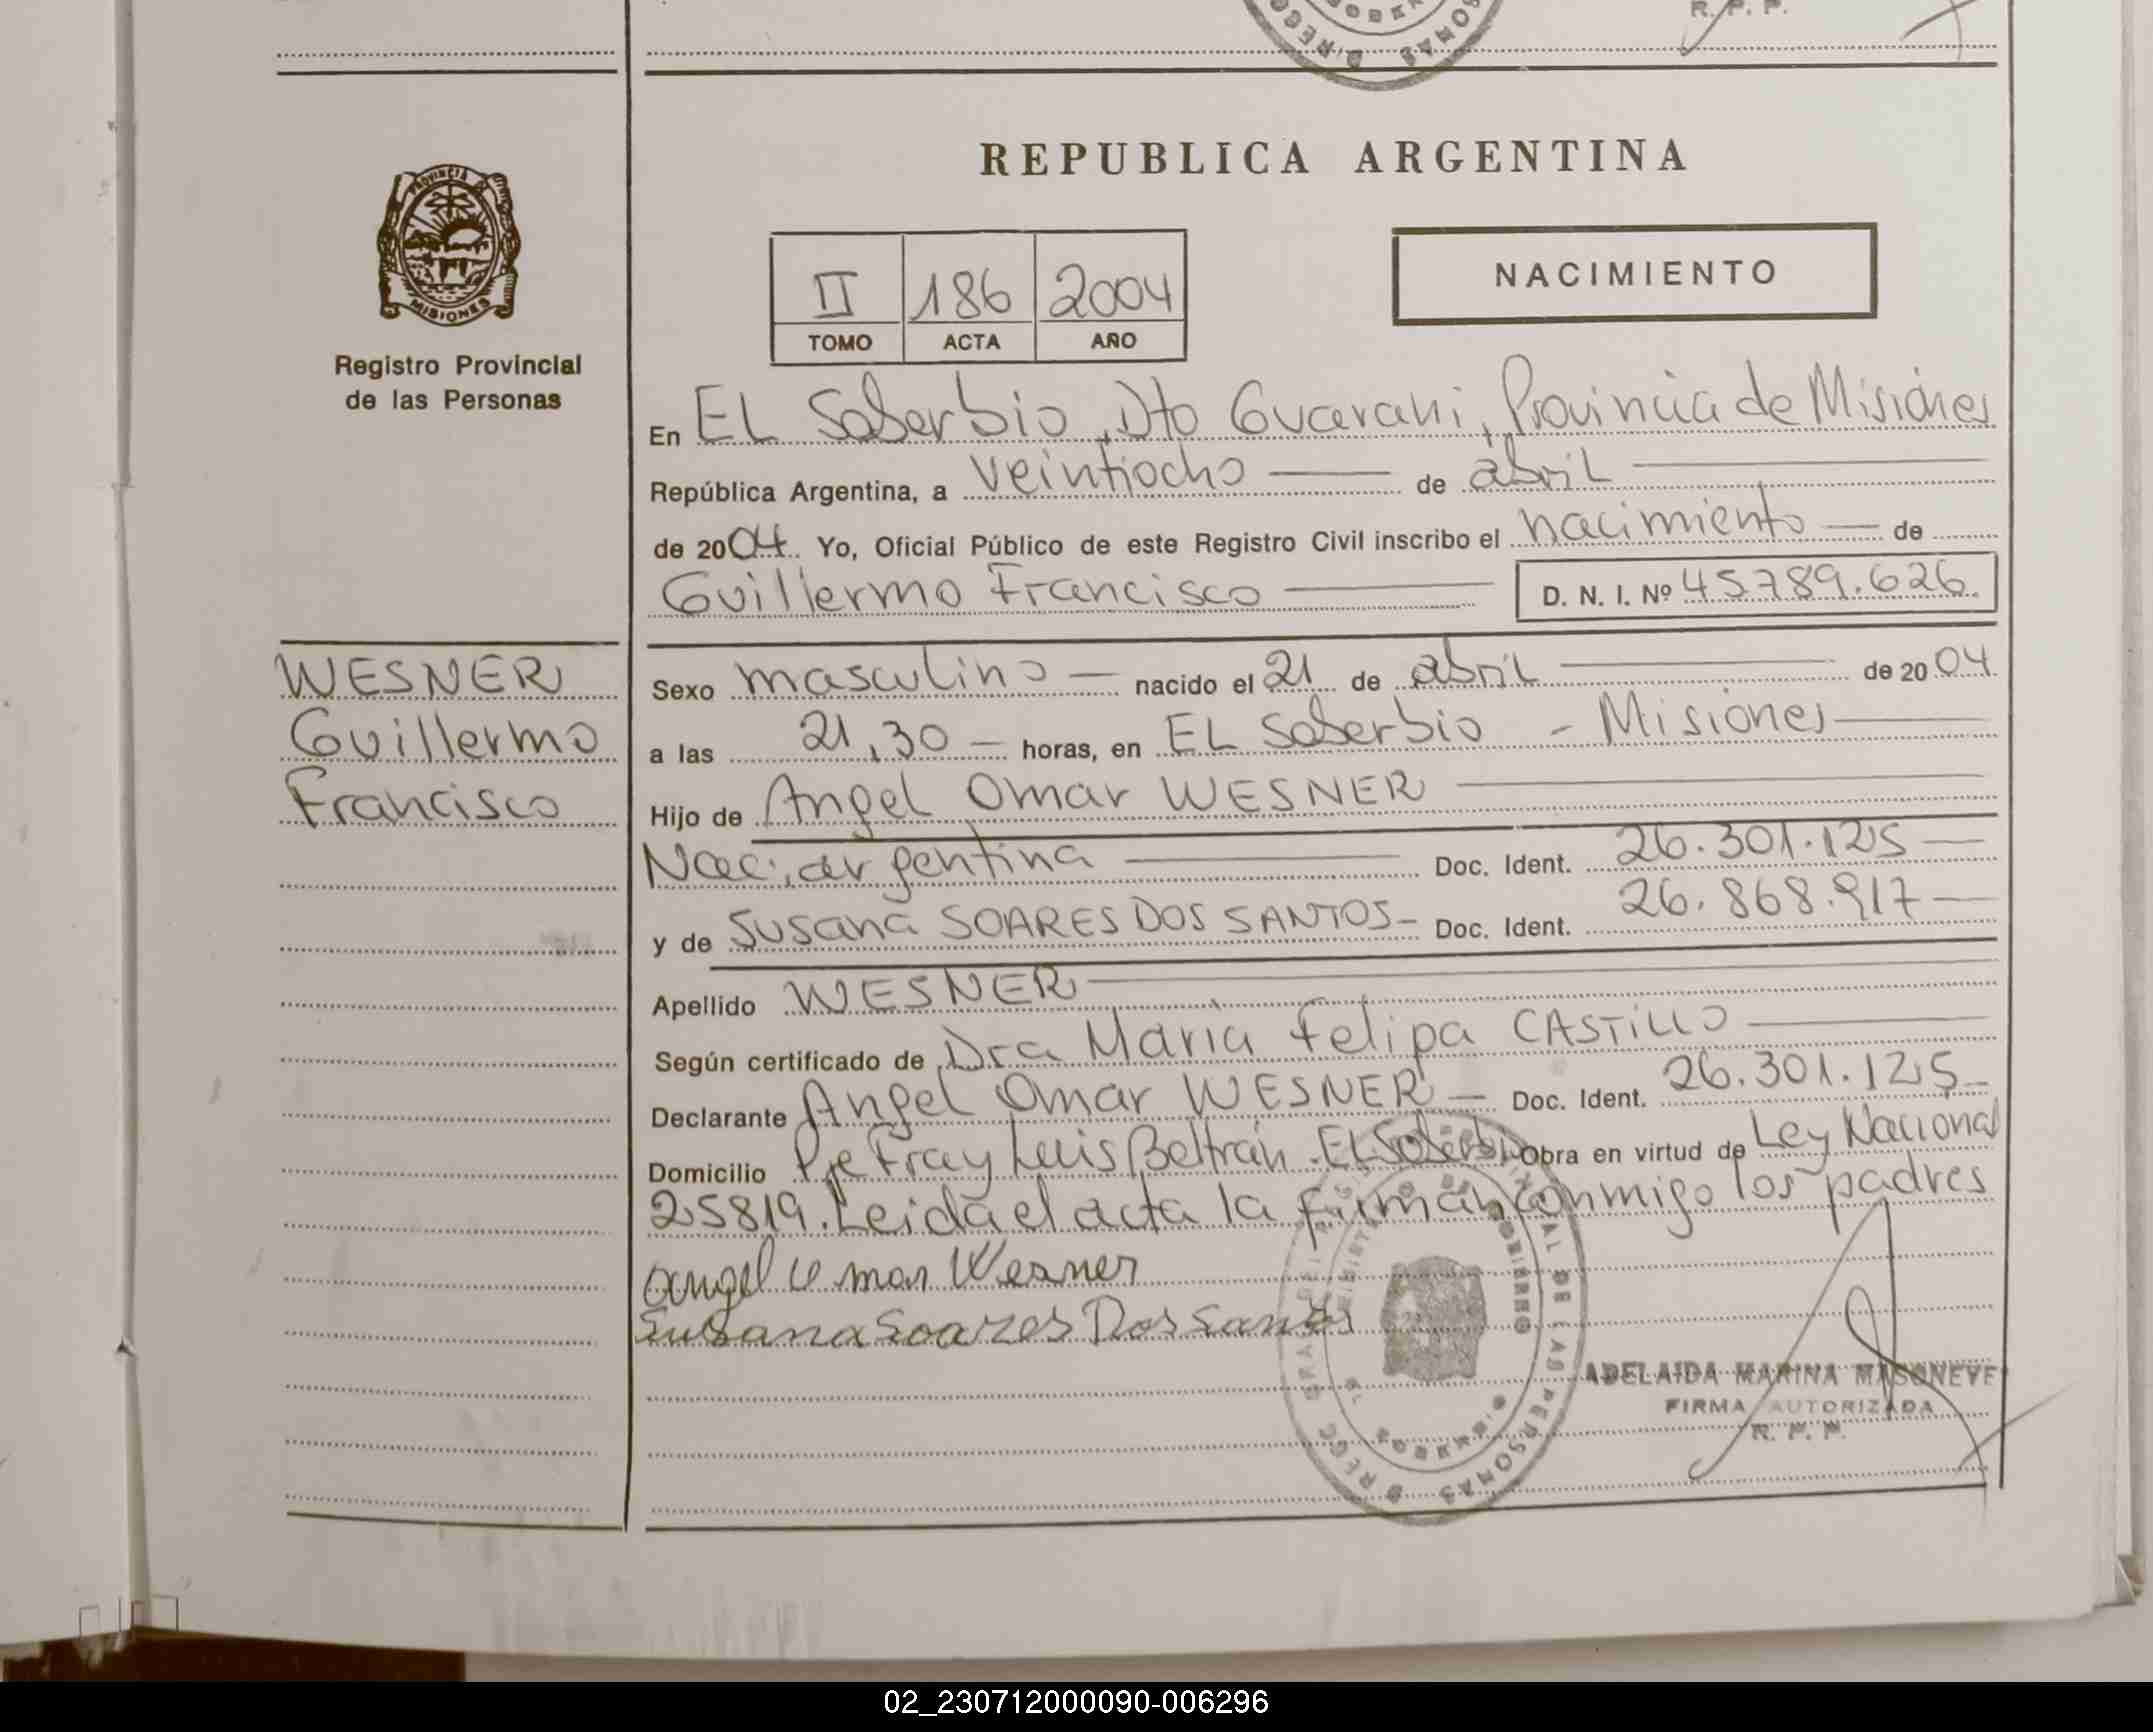 R. P. P.
PROVINCIA DE
MISIONES
Registro Provincial
de las Personas
REPUBLICA ARGENTINA
NACIMIENTO
II 186 2004
TOMO ACTA AÑO
En EL Soberbio, Dto Guarani, Provincia de Misiones
República Argentina, a veintiocho de abril
de 2004. Yo, Oficial Público de este Registro Civil inscribo el nacimiento de
Guillermo Francisco D. N. I. Nº 45.789.626.
WESNER
Guillermo
Francisco
Sexo masculino nacido el 21 de abril de 2004
a las 21,30 horas, en EL Soberbio - Misiones
Hijo de Angel Omar WESNER
Nac. argentina Doc. Ident. 26.301.125
y de Susana SOARES DOS SANTOS Doc. Ident. 26.868.917
Apellido WESNER
Según certificado de Dra Maria Felipa CASTILLO
Declarante Angel Omar WESNER Doc. Ident. 26.301.125
Domicilio Pje Fray Luis Beltrán. EL Soberbio Obra en virtud de Ley Nacional
25819. Leida el acta la firman conmigo los padres
Angel Omar Wesner
Susana Soares Dos Santos
ADELAIDA MARINA MASONEVE
FIRMA AUTORIZADA
R. P. P.
02_230712000090-006296